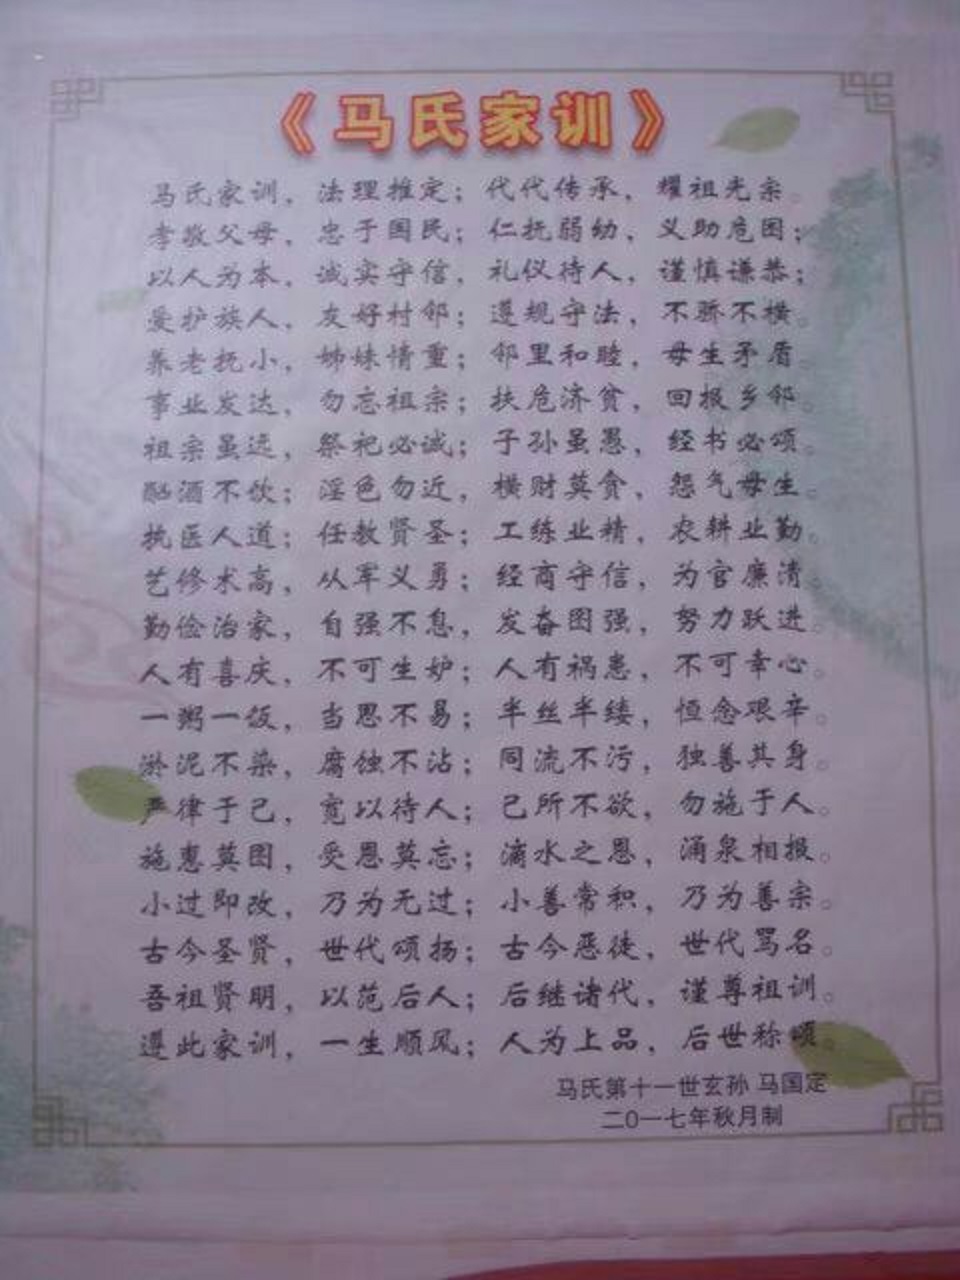 《马氏家训》
马氏家训，法理推定；代代传承，耀祖光宗。
孝敬父母，忠于国民；仁抚弱幼，义助危困；
以人为本，诚实守信，礼仪待人，谨慎谦恭；
爱护族人，友好村邻；遵规守法，不骄不横。
养老抚小，姊妹情重；邻里和睦，毋生矛盾。
事业发达，勿忘祖宗；扶危济贫，回报乡邻。
祖宗虽远，祭祀必诚；子孙虽愚，经书必颂。
酗酒不饮；淫色勿近，横财莫贪，怨气毋生。
执医人道；任教贤圣；工练业精，农耕业勤。
艺修术高，从军义勇；经商守信，为官廉清。
勤俭治家，自强不息，发奋图强，努力跃进。
人有喜庆，不可生妒；人有祸患，不可幸心。
一粥一饭，当思不易；半丝半缕，恒念艰辛。
淤泥不染，腐蚀不沾；同流不污，独善其身。
严律于己，宽以待人；己所不欲，勿施于人。
施惠莫图，受恩莫忘；滴水之恩，涌泉相报。
小过即改，乃为无过；小善常积，乃为善宗。
古今圣贤，世代颂扬；古今恶徒，世代骂名。
吾祖贤明，以范后人；后继诸代，谨尊祖训。
遵此家训，一生顺风；人为上品，后世称颂。
马氏第十一世玄孙 马国定
二0一七年秋月制